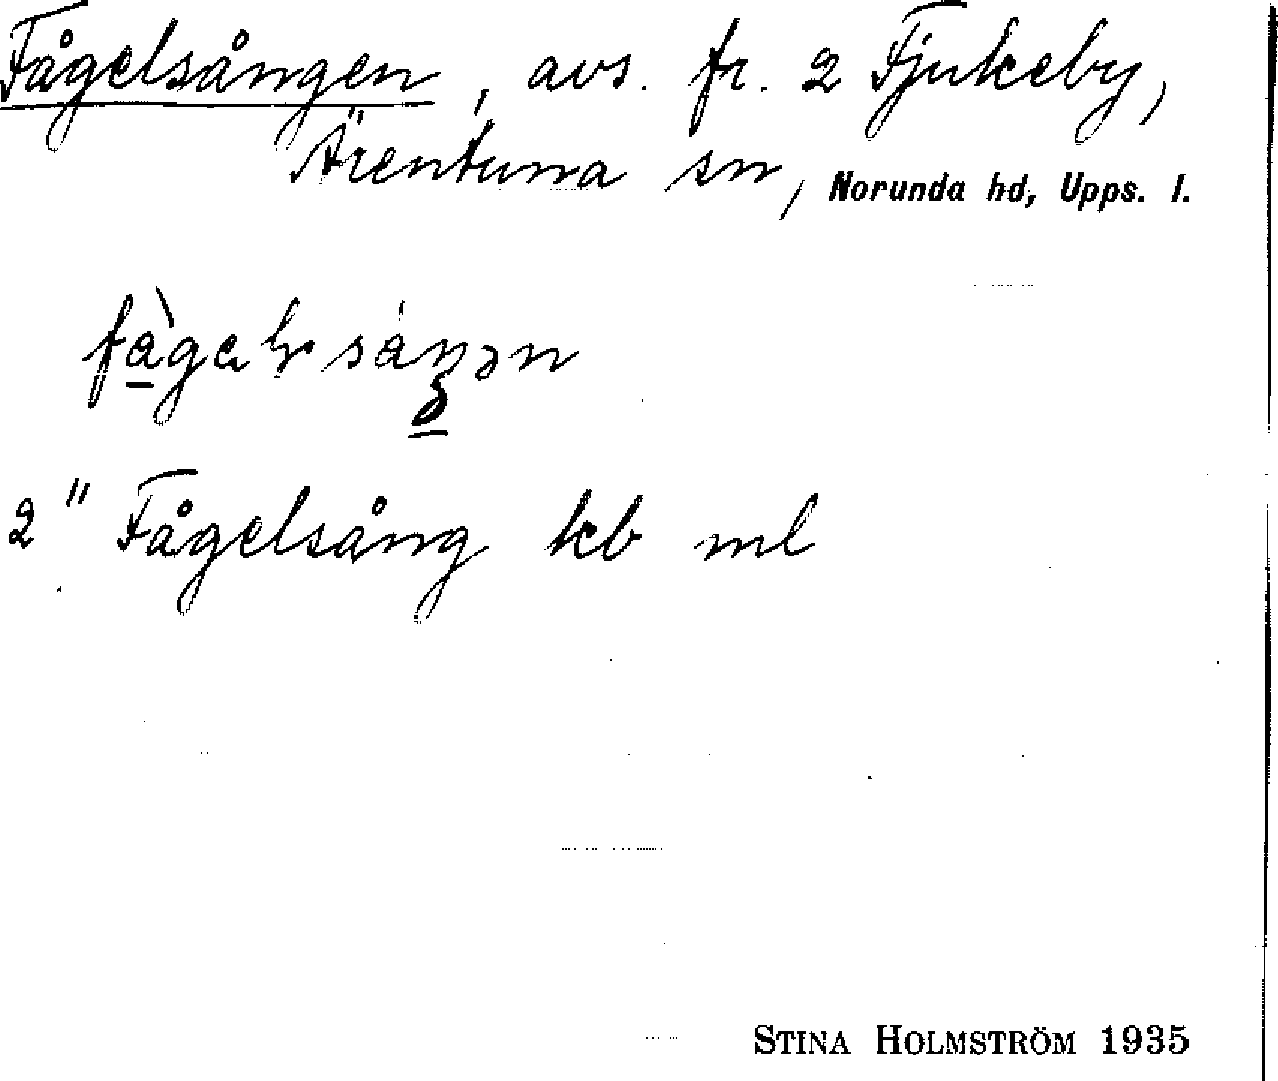 Fågelsången, avs. fr. 2 Fjukeby,
Ärentuna sn, Norunda hd, Upps. l.
2" Fågelsång kb ml
STINA HOLMSTRÖM 1935